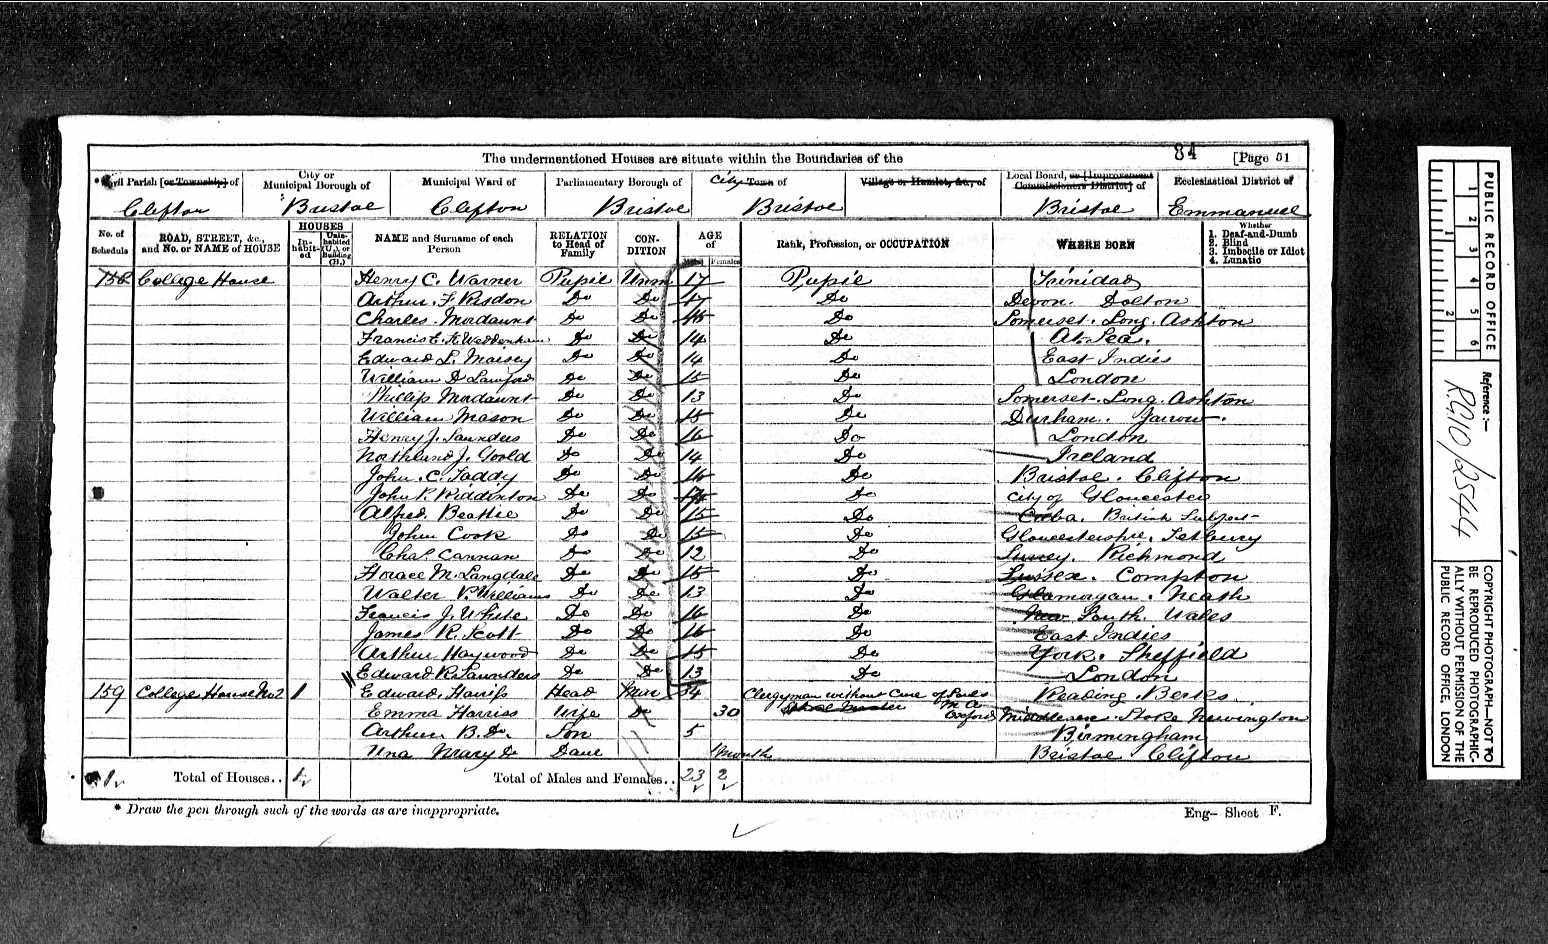 84
The undermentioned Houses are situate within the Boundaries of the [Page 51
* Civil Parish [or Township] of City or Municipal Borough of Municipal Ward of Parliamentary Borough of City Town of Village or Hamlet, &c., of Local Board, or [Improvement Commissioners District] of Ecclesiastical District of
Clifton Bristol Clifton Bristol Bristol Bristol Emmanuel
No. of Schedule ROAD, STREET, &c., and No. or NAME of HOUSE HOUSES Inhabited Uninhabited (U.), or Building (B.) NAME and Surname of each Person RELATION to Head of Family CONDITION AGE of Males Females Rank, Profession, or OCCUPATION WHERE BORN Whether 1. Deaf-and-Dumb 2. Blind 3. Imbecile or Idiot 4. Lunatic
158 College House Henry C. Warner Pupil Unm 17 Pupil Trinidad
Arthur. F. Risdon Do Do 17 Do Devon. Dolton
Charles. Mordaunt Do Do Do Somerset. Long. Ashton
Francis E. Do Do 14 Do At Sea.
Edward L. Maisey Do Do 14 Do East Indies
William D Lawford Do Do 15 Do London
Phillip Mordaunt Do Do 13 Do Somerset. Long. Ashton
William Mason Do Do 15 Do Durham. Jarrow.
Henry J. Saunders Do Do 16 Do London
J. Goold Do Do 14 Do Ireland
John. C. Taddy Do Do 16 Do Bristol. Clifton
John P. Riddinton Do Do Do City of Gloucester
Alfred. Beattie Do Do 15 Do Cuba. British Subject
John Cook Do Do 15 Do Gloucestershire. Tetbury
Chas. Cannan Do Do 12 Do Surrey. Richmond
Horace M. Langdale Do Do 15 Do Sussex. Compton
Walter P. Williams Do Do 13 Do Glamorgan. Neath
Francis J. White Do Do 16 Do New South. Wales
James R. Scott Do Do 16 Do East Indies
Arthur Haywood Do Do 15 Do York. Sheffield
Edward R. Saunders Do Do 13 Do London
159 College House No2 1 Edward. Harriss Head Mar 34 Clergyman without Cure of Souls M.A. Oxford Reading. Berks
Emma Harriss Wife Do 30 Middlesex. Stoke Newington
Arthur. B. Do. Son 5 Birmingham
Una Mary Do Daur 1 Months Bristol Clifton
1 Total of Houses.. 1 Total of Males and Females.. 23 2
* Draw the pen through such of the words as are inappropriate. Eng— Sheet F.
PUBLIC RECORD OFFICE
1 2 3 4 5 6
1 2
Reference :—
RG10/2544
COPYRIGHT PHOTOGRAPH—NOT TO
BE REPRODUCED PHOTOGRAPHIC-
ALLY WITHOUT PERMISSION OF THE
PUBLIC RECORD OFFICE, LONDON